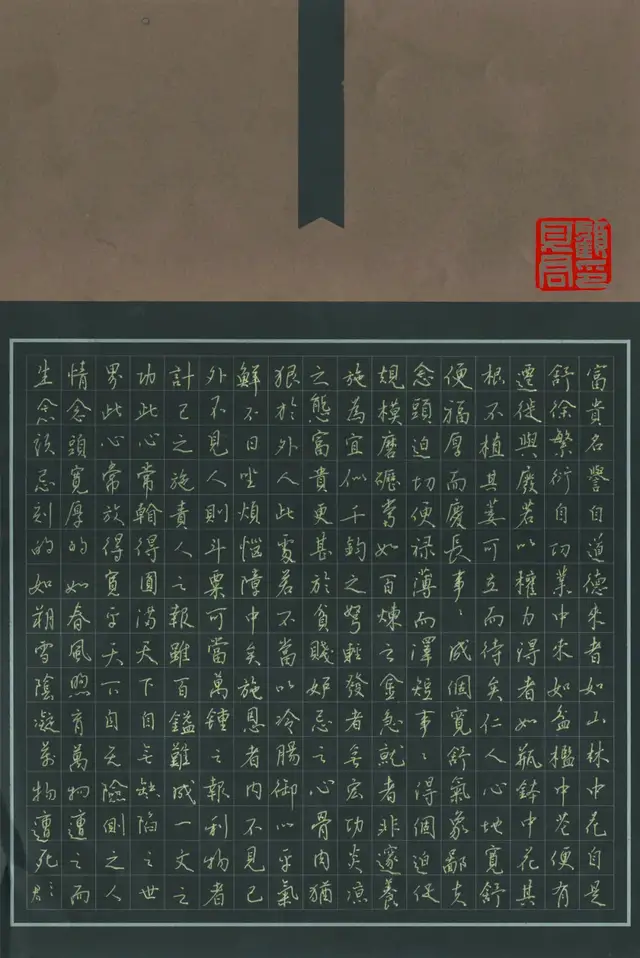 富貴名譽自道德來者如山林中花自是
舒徐繁衍自功業中來如盆檻中花便有
遷徙與廢若以權力得者如瓶鉢中花其
根不植其萎可立而待矣仁人心地寬舒
便福厚而慶長事々成個寬舒氣象鄙夫
念頭迫切便祿薄而澤短事々得個迫促
規模磨礪當如百煉之金急就者非邃養
施為宜似千鈞之弩輕發者無宏功炎凉
之態富貴更甚於貧賤妒忌之心骨肉猶
狠於外人此處若不當以冷腸御以平氣
鮮不日坐煩惱障中矣施恩者內不見己
外不見人則斗粟可當萬鍾之報利物者
計己之施責人之報雖百鎰難成一文之
功此心常得圓滿天下自無缺陷之世
界此心常放得寬平天下自无險側之人
情念頭寬厚的如春風煦育萬物遭之而
生念頭忌刻的如朔雪陰凝萬物遭死